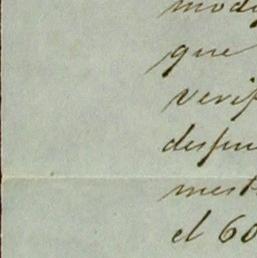 mod
que
verif
despu
mes
el 60